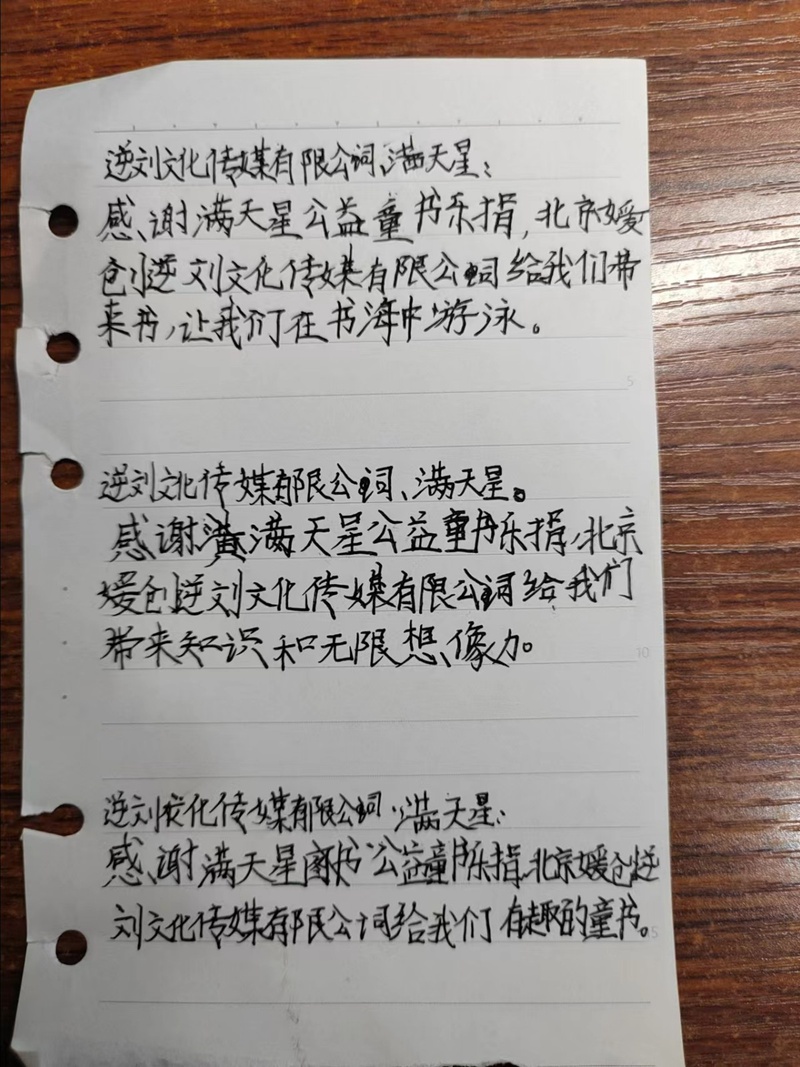 逆刘文化传媒有限公词、满天星：
感谢满天星公益童书乐捐，北京媛
创逆刘文化传媒有限公词给我们带
来书，让我们在书海中游泳。
5
逆刘文化传媒有限公词、满天星。
感谢满天星公益童书乐捐，北京
媛创逆刘文化传媒有限公词给我们
带来知识和无限想像力。
10
逆刘文化传媒有限公词、满天星：
感谢满天星图书公益童书乐捐，北京媛创逆
刘文化传媒有限公词给我们有趣的童书。